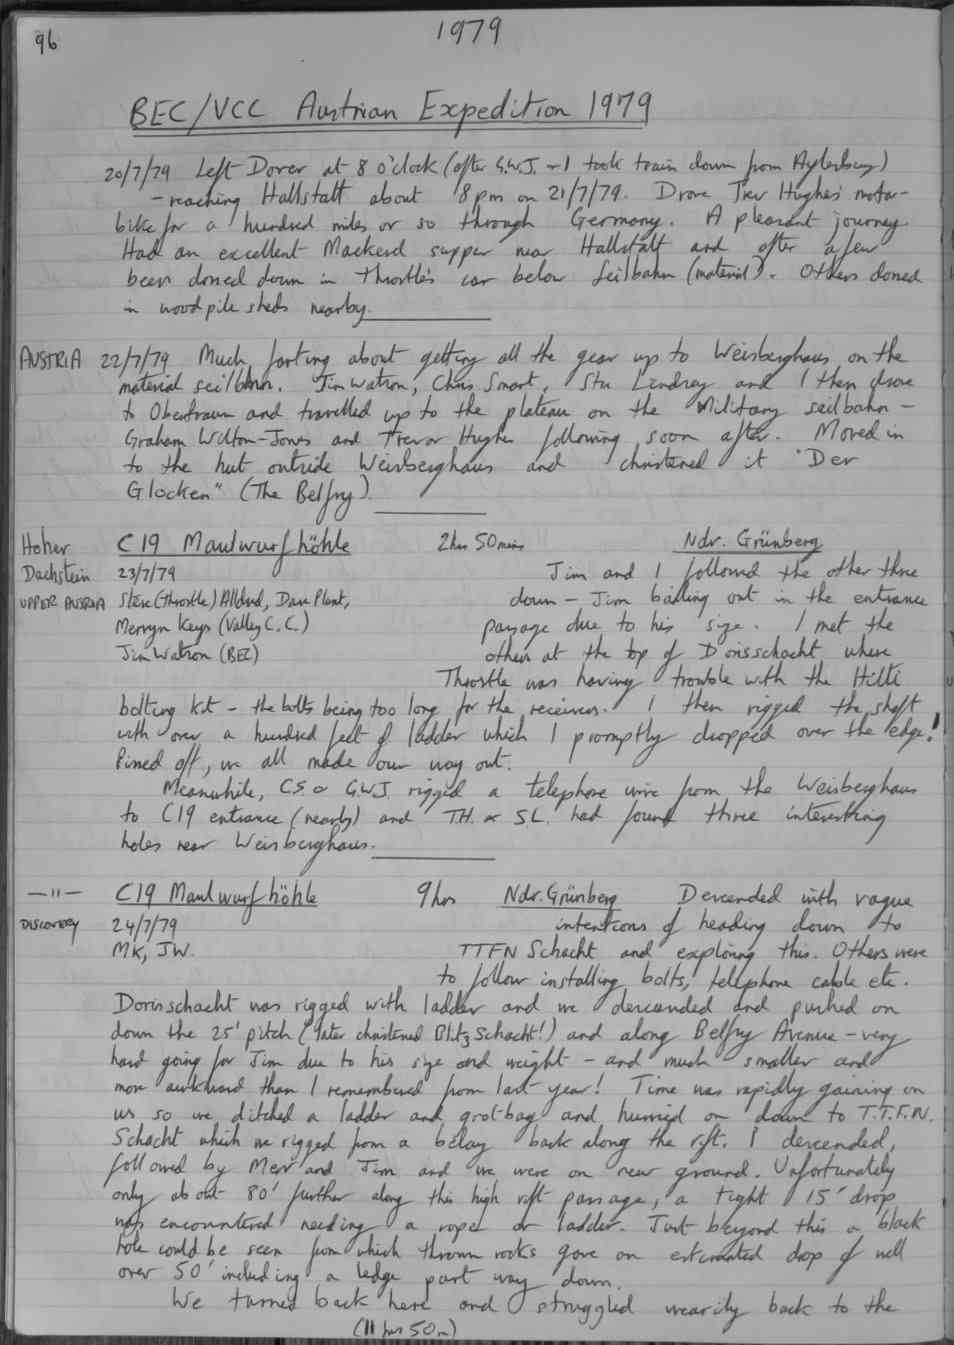 96
1979
BEC/VCC Austrian Expedition 1979
20/7/79 Left Dover at 8 o'clock (after G.W.J. + I took train down from Aylesbury)
- reaching Hallstatt about 8pm on 21/7/79. Drove Trev Hughes' motor-
bike for a hundred miles or so through Germany. A pleasant journey.
Had an excellent Mackerel supper near Hallstatt and after a few
beers dossed down in Throstle's car below seilbahn (material). Others dossed
in woodpile sheds nearby.
AUSTRIA 22/7/79 Much farting about getting all the gear up to Weisberghaus on the
material seilbahn. Jim Watson, Chris Smart, Stu Lindsey and I then drove
to Obertraun and travelled up to the plateau on the Military seilbahn -
Graham Wilton-Jones and Trevor Hughes following soon after. Moved in
to the hut outside Weisberghaus and christened it "Der
Glocken" (The Belfry).
Hoher C19 Maulwurfhöhle 2hrs 50mins Ndr. Grünberg
Dachstein 23/7/79 Jim and I followed the other three
UPPER AUSTRIA Steve (Throstle) Alldred, Dave Plant, down - Jim bailing out in the entrance
Mervyn Keys (Valley C.C.) passage due to his size. I met the
Jim Watson (BEC) others at the top of Dorisschacht where
Throstle was having trouble with the Hilti
bolting kit - the bolts being too long for the receivers. I then rigged the shaft
with over a hundred feet of ladder which I promptly dropped over the edge!
Pissed off, we all made our way out.
Meanwhile, C.S. & G.W.J. rigged a telephone wire from the Weisberghaus
to C19 entrance (nearby) and T.H. & S.L. had found three interesting
holes near Weisberghaus.
—"— C19 Maulwurfhöhle 9hrs Ndr. Grünberg Descended with vague
DISCOVERY 24/7/79 intentions of heading down to
MK, JW. TTFN Schacht and exploring this. Others were
to follow installing bolts, telephone cable etc.
Dorisschacht was rigged with ladder and we descended and pushed on
down the 25' pitch (later christened Blitz Schacht!) and along Belfry Avenue - very
hard going for Jim due to his size and weight - and much smaller and
more awkward than I remembered from last year! Time was rapidly gaining on
us so we ditched a ladder and grot-bag and hurried on down to T.T.F.N.
Schacht which we rigged from a belay back along the rift. I descended,
followed by Merv and Jim and we were on new ground. Unfortunately
only about 80' further along this high rift passage, a tight 15' drop
was encountered needing a rope or ladder. Just beyond this a black
hole could be seen from which thrown rocks gave an estimated drop of well
over 50' including a ledge part way down.
We turned back here and struggled wearily back to the
(11 hrs 50m)